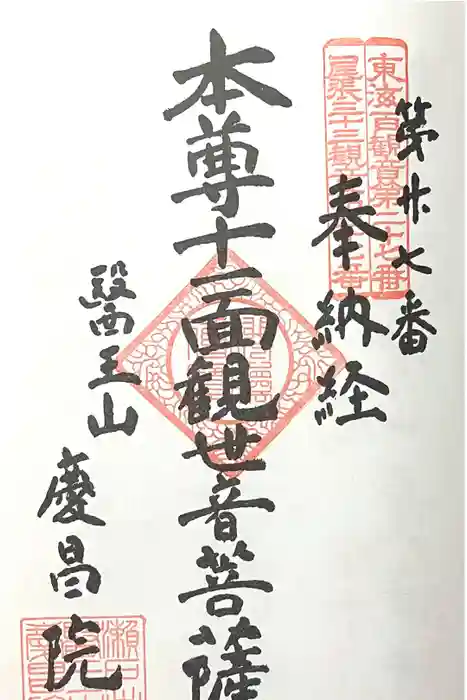 第廿七番
奉納経
東海百観音第二十七番
尾張三十三観音
本尊十一面観世音菩薩
醫王山
慶昌院